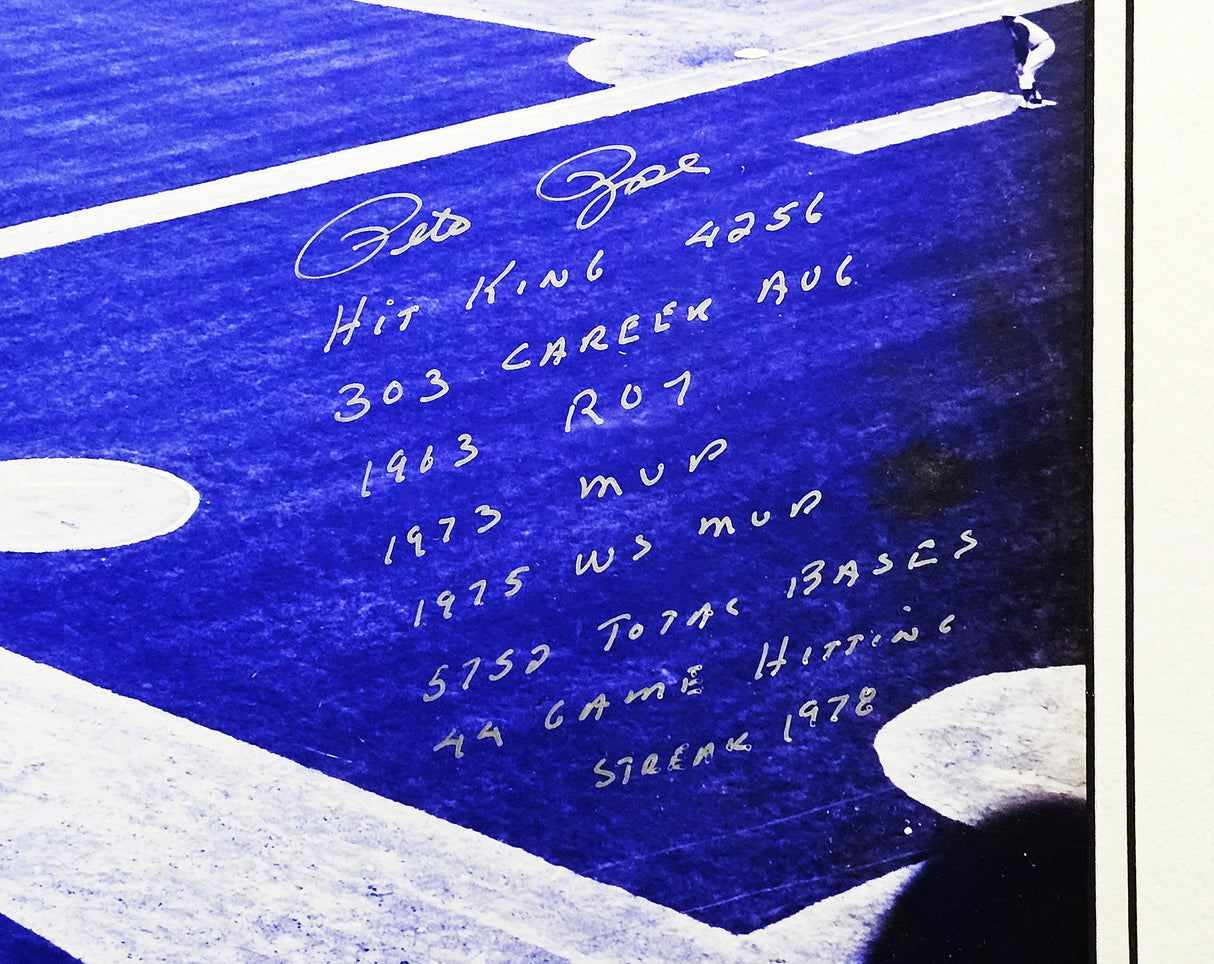 Pete Rose
Hit KING 4256
303 CAREER AVG
1963 ROY
1973 MVP
1975 WS MVP
5752 TOTAL BASES
44 GAME HITTING
STREAK 1978